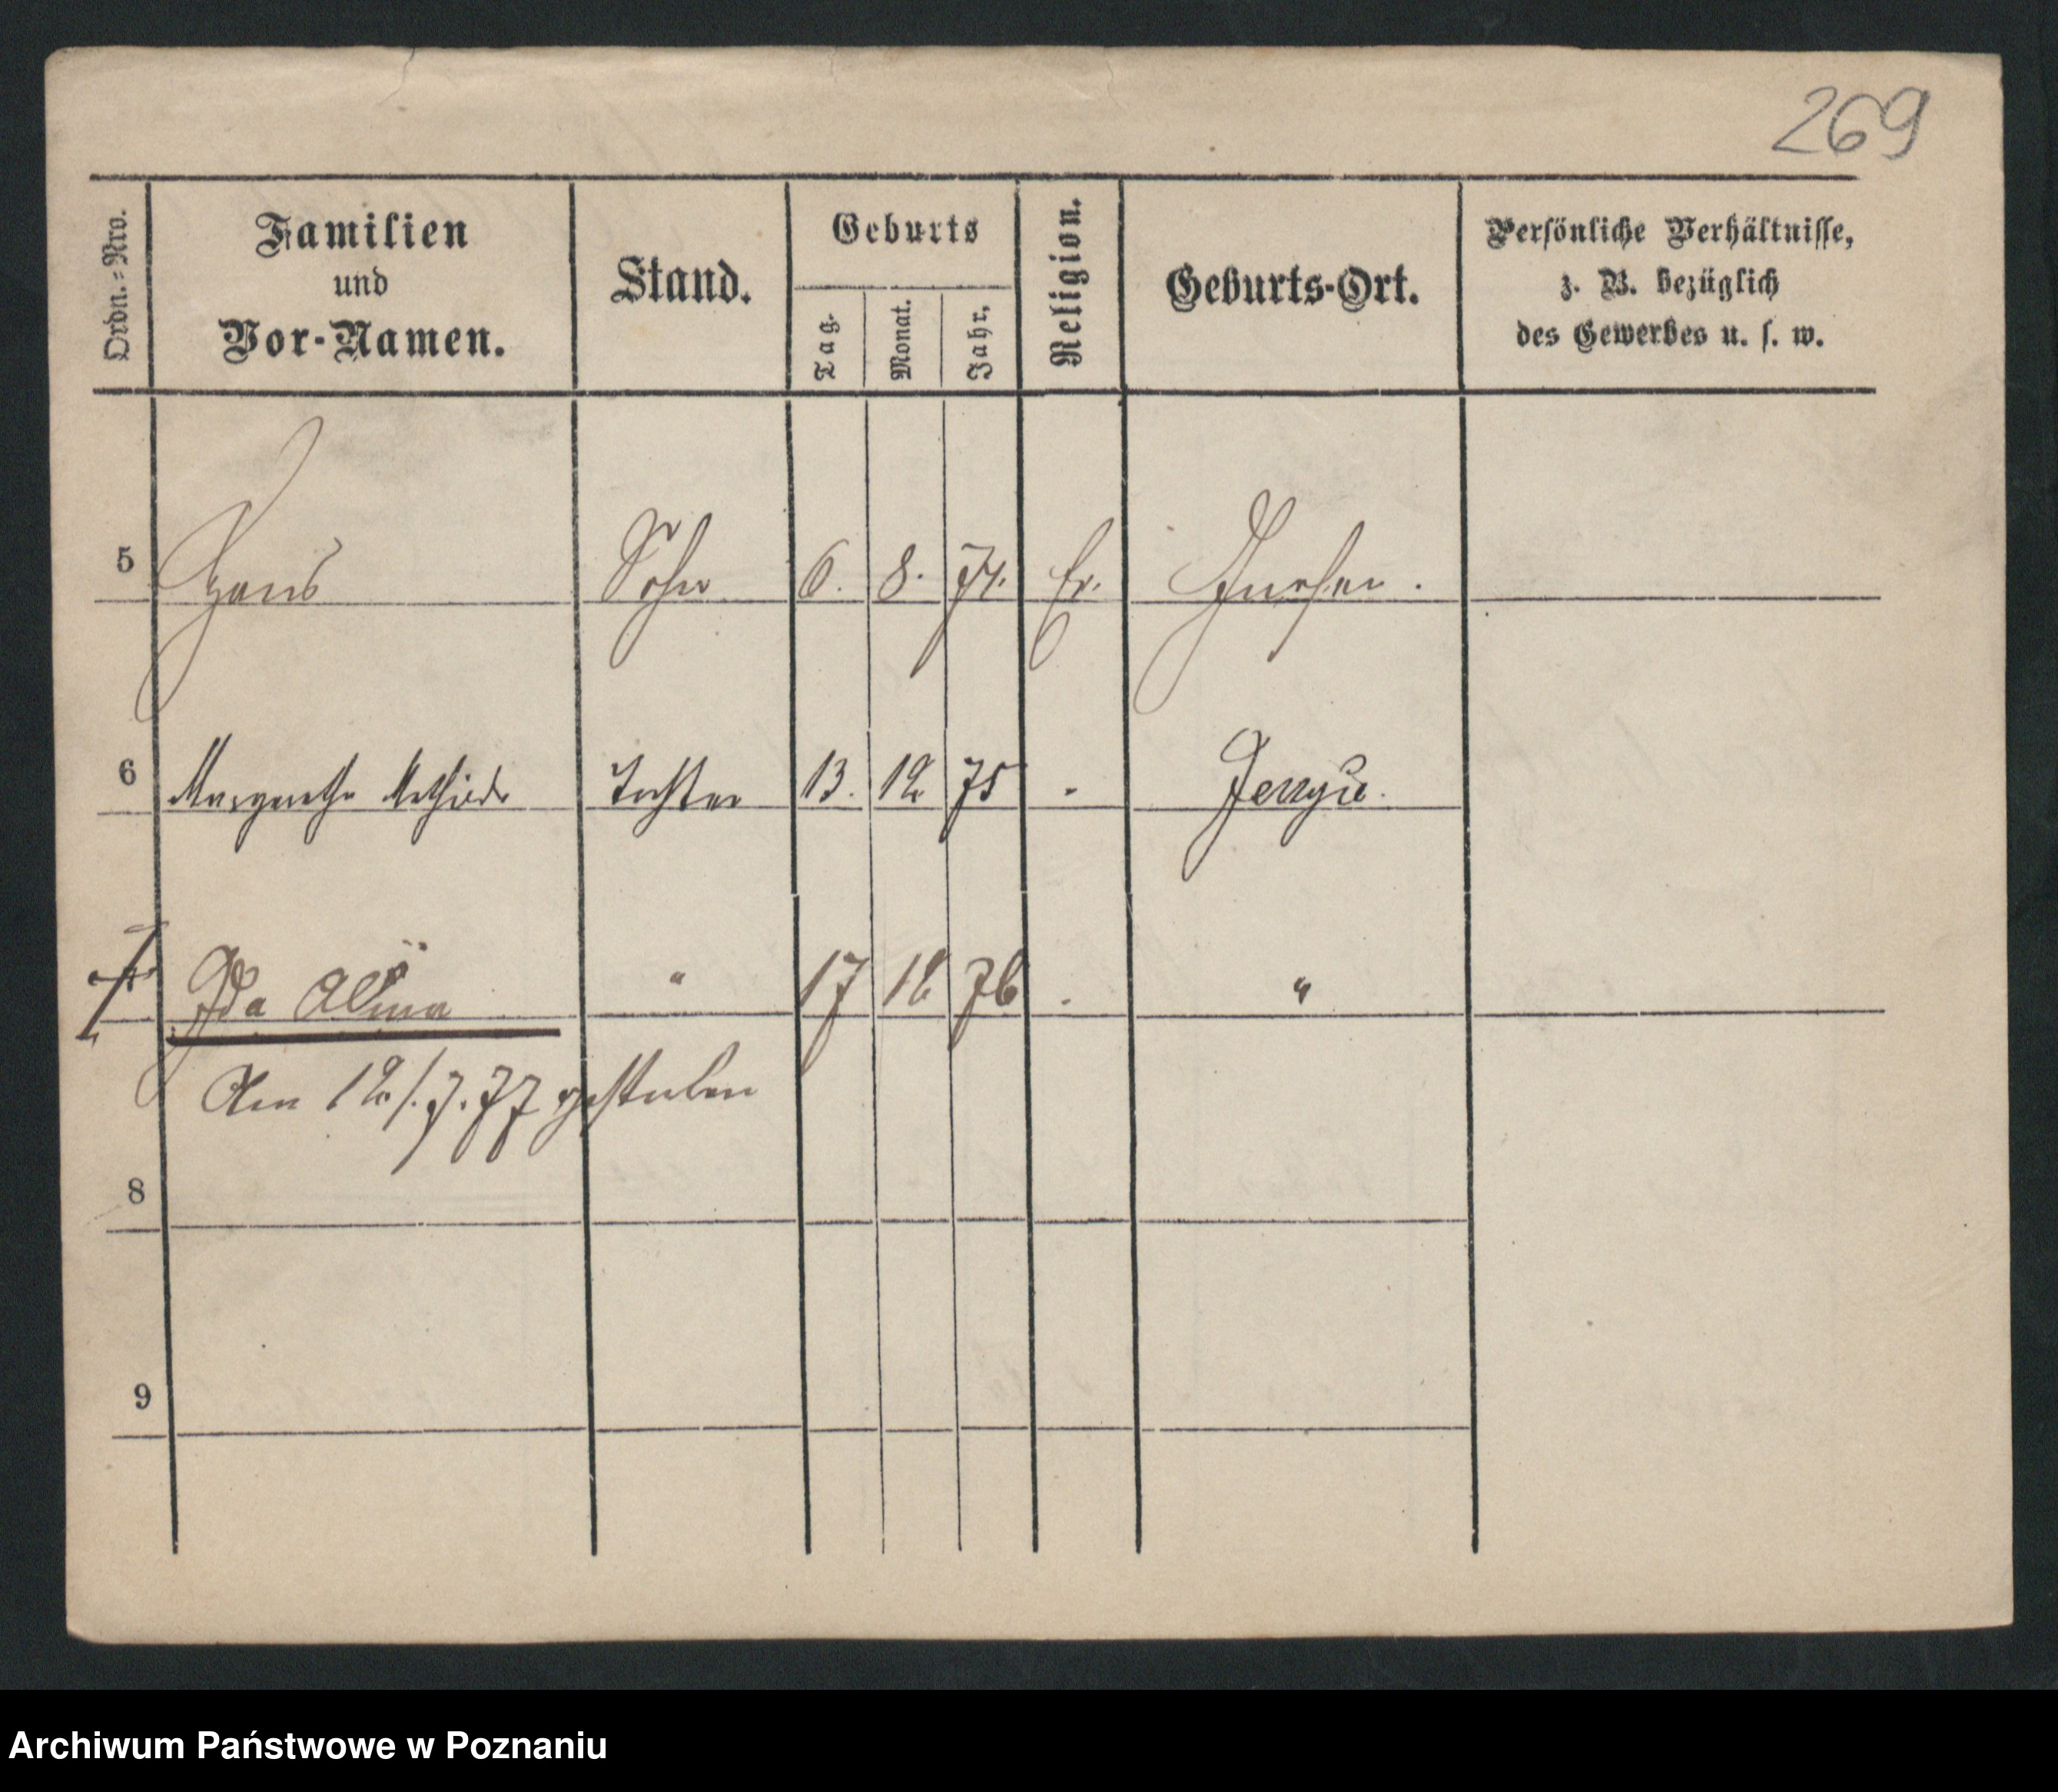 269
Ordn.=Nro.
Familien
und
Vor-Namen.
Stand.
Geburts
Tag.
Monat.
Jahr.
Religion.
Geburts-Ort.
Persönliche Verhältnisse,
z. B. bezüglich
des Gewerbes u. s. w.
5 Hans Sohn 6. 8. 74. Ev.
6 Margarethe Tochter 13. 12 75 Jerzyce.
7 Ida Alma " 17 12 76 "
Am 12/.7.77 gestorben
8
9
Archiwum Państwowe w Poznaniu